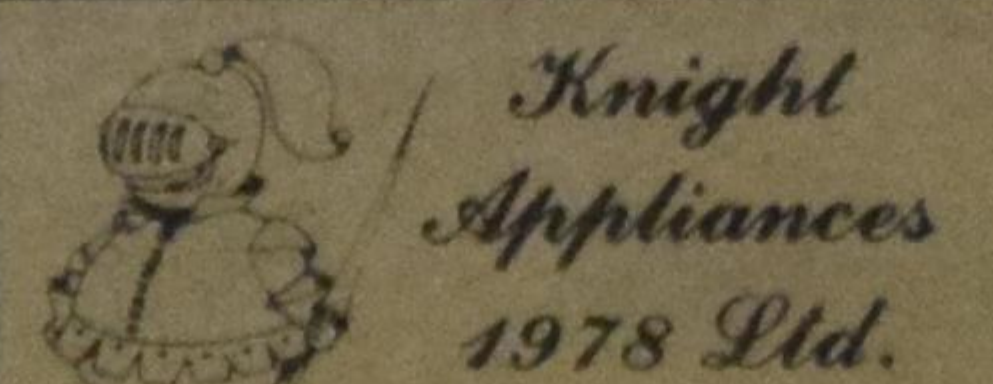 Knight
Appliances
1978 Ltd.